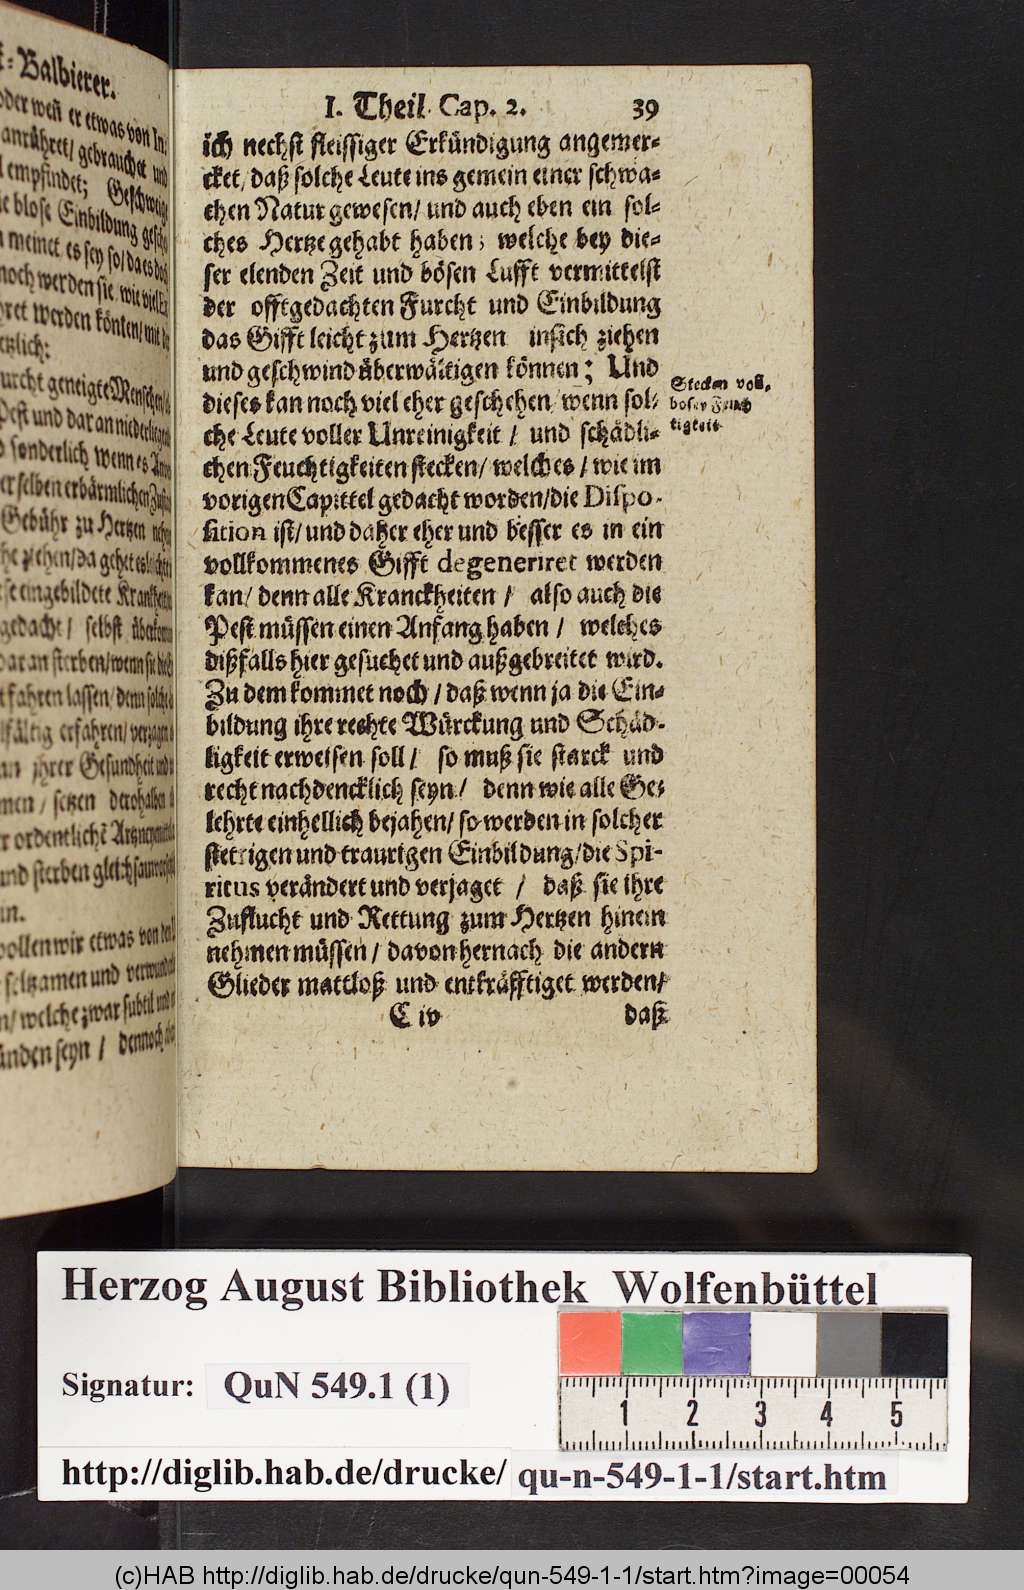 k-Balbierer.
oder weñ er etwas von In-
anrühret/ gebrauchet und
empfindet; Geschweige
blose Einbildung gescha
meinet es sey so/ da es doch
noch werden sie wie viel
ret werden könten/ mit
tzlich:
urcht geneigte Menschen/
Pest und daran niederliegen
sonderlich wenn es
erselben erbärmlichen
Gebühr zu Hertzen
he ziehen/ da gehet es
se eingebildete Kranckheit
gedacht/ selbst
daran sterben/ wenn sie
fahren lassen/ denn solche
lfältig erfahren/ verzagen
an ihrer Gesundheit und
men/ setzen derohalben
r ordentlichē
und sterben gleichsam
in.
wollen wir etwas von
seltzamen und
n/ welche zwar subtil und
ünden seyn / dennoch
I. Theil. Cap. 2. 39
ich nechst fleissiger Erkündigung angemer-
cket/ daß solche Leute ins gemein einer schwa-
chen Natur gewesen/ und auch eben ein sol-
ches Hertze gehabt haben; welche bey die-
ser elenden Zeit und bösen Lufft vermittelst
der offtgedachten Furcht und Einbildung
das Gifft leicht zum Hertzen insich ziehen
und geschwind überwältigen können; Und
dieses kan noch viel eher geschehen/ wenn sol-
che Leute voller Unreinigkeit / und schädli-
chen Feuchtigkeiten stecken/ welches / wie im
vorigen Capittel gedacht worden/ die Dispo-
sition ist/ und daher eher und besser es in ein
vollkommenes Gifft degeneriret werden
kan/ denn alle Kranckheiten / also auch die
Pest müssen einen Anfang haben / welches
dißfalls hier gesuchet und außgebreitet wird.
Zu dem kommet noch / daß wenn ja die Ein-
bildung ihre rechte Würckung und Schäd-
ligkeit erweisen soll / so muß sie starck und
recht nachdencklich seyn / denn wie alle Ge-
lehrte einhellich bejahen/ so werden in solcher
stetigen und traurigen Einbildung/ die Spi-
ritus verändert und verjaget / daß sie ihre
Zuflucht und Rettung zum Hertzen hinein
nehmen müssen / davon hernach die andern
Glieder mattloß und entkräfftiget werden/
C iv daß
Stecken voll
boser Feuch
tigkeit
Herzog August Bibliothek Wolfenbüttel
Signatur: QuN 549.1 (1)
1 2 3 4 5
http://diglib.hab.de/drucke/ qu-n-549-1-1/start.htm
(c)HAB http://diglib.hab.de/drucke/qun-549-1-1/start.htm?image=00054